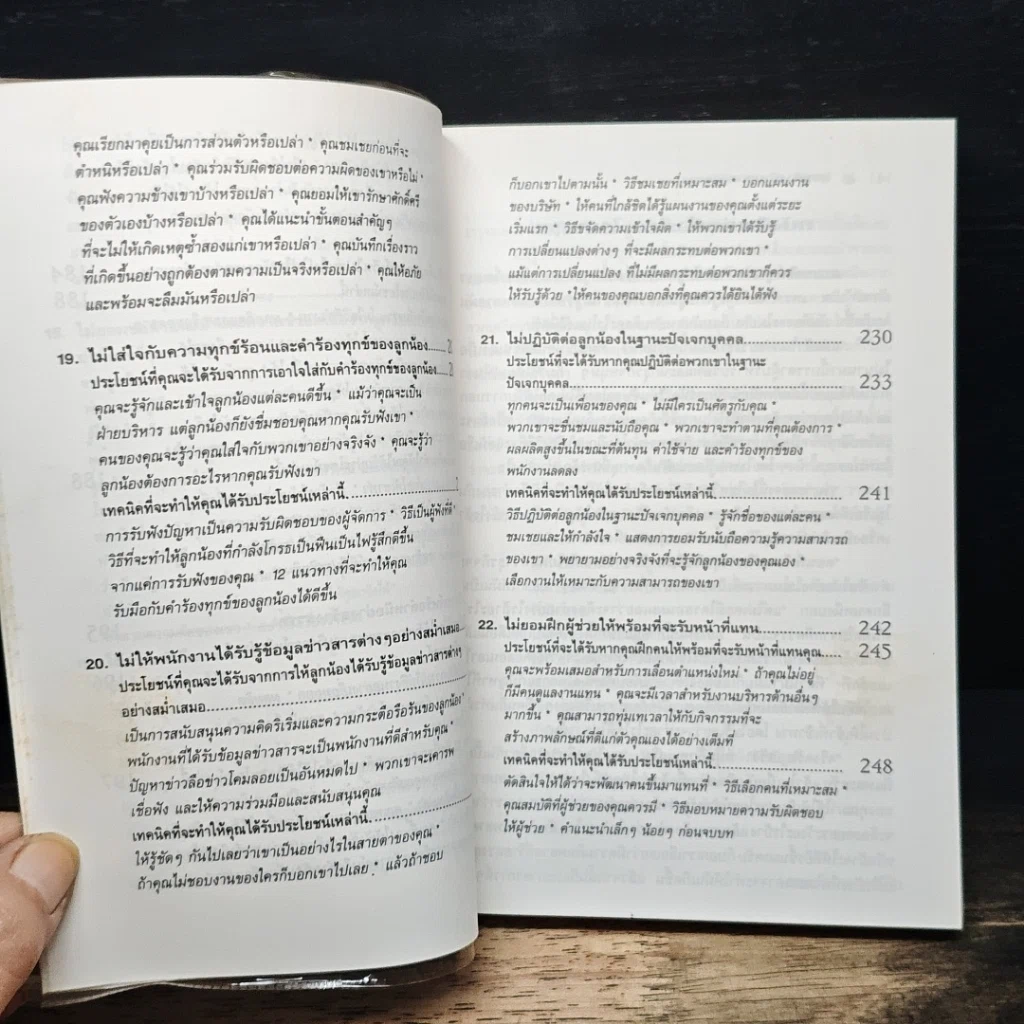 คุณเรียกมาคุยเป็นการส่วนตัวหรือเปล่า * คุณชมเชยก่อนที่จะ
ตำหนิหรือเปล่า * คุณร่วมรับผิดชอบต่อความผิดของเขาหรือไม่ *
คุณฟังความข้างเขาบ้างหรือเปล่า * คุณยอมให้เขารักษาศักดิ์ศรี
ของตัวเองบ้างหรือเปล่า * คุณได้แนะนำขั้นตอนสำคัญๆ
ที่จะไม่ให้เกิดเหตุซ้ำสองแก่เขาหรือเปล่า * คุณบันทึกเรื่องราว
ที่เกิดขึ้นอย่างถูกต้องตามความเป็นจริงหรือเปล่า * คุณให้อภัย
และพร้อมจะลืมมันหรือเปล่า
19. ไม่ใส่ใจกับความทุกข์ร้อนและคำร้องทุกข์ของลูกน้อง......
ประโยชน์ที่คุณจะได้รับจากการเอาใจใส่กับคำร้องทุกข์ของลูกน้อง.....
คุณจะรู้จักและเข้าใจลูกน้องแต่ละคนดีขึ้น * แม้ว่าคุณจะเป็น
ฝ่ายบริหาร แต่ลูกน้องก็ยังชื่นชอบคุณหากคุณรับฟังเขา *
คนของคุณจะรู้ว่าคุณใส่ใจกับพวกเขาอย่างจริงจัง * คุณจะรู้ว่า
ลูกน้องต้องการอะไรหากคุณรับฟังเขา
เทคนิคที่จะทำให้คุณได้รับประโยชน์เหล่านี้..........................
การรับฟังปัญหาเป็นความรับผิดชอบของผู้จัดการ * วิธีเป็นผู้ฟังที่ดี *
วิธีที่จะทำให้ลูกน้องที่กำลังโกรธเป็นฟืนเป็นไฟรู้สึกดีขึ้น
จากแค่การรับฟังของคุณ * 12 แนวทางที่จะทำให้คุณ
รับมือกับคำร้องทุกข์ของลูกน้องได้ดีขึ้น
20. ไม่ให้พนักงานได้รับรู้ข้อมูลข่าวสารต่างๆอย่างสม่ำเสมอ.....
ประโยชน์ที่คุณจะได้รับจากการให้ลูกน้องได้รับรู้ข้อมูลข่าวสารต่างๆ
อย่างสม่ำเสมอ............................................................
เป็นการสนับสนุนความคิดริเริ่มและความกระตือรือร้นของลูกน้อง *
พนักงานที่ได้รับข้อมูลข่าวสารจะเป็นพนักงานที่ดีสำหรับคุณ *
ปัญหาข่าวลือข่าวโคมลอยเป็นอันหมดไป * พวกเขาจะเคารพ
เชื่อฟัง และให้ความร่วมมือและสนับสนุนคุณ
เทคนิคที่จะทำให้คุณได้รับประโยชน์เหล่านี้..........................
ให้รู้ชัดๆ กันไปเลยว่าเขาเป็นอย่างไรในสายตาของคุณ *
ถ้าคุณไม่ชอบงานของใครก็บอกเขาไปเลย * แล้วถ้าชอบ
ก็บอกเขาไปตามนั้น * วิธีชมเชยที่เหมาะสม * บอกแผนงาน
ของบริษัท * ให้คนที่ใกล้ชิดได้รู้แผนงานของคุณตั้งแต่ระยะ
เริ่มแรก * วิธีขจัดความเข้าใจผิด * ให้พวกเขาได้รับรู้
การเปลี่ยนแปลงต่างๆ ที่จะมีผลกระทบต่อพวกเขา *
แม้แต่การเปลี่ยนแปลง ที่ไม่มีผลกระทบต่อพวกเขาก็ควร
ให้รับรู้ด้วย *ให้คนของคุณบอกสิ่งที่คุณควรได้ยินได้ฟัง
21. ไม่ปฏิบัติต่อลูกน้องในฐานะปัจเจกบุคคล...................... 230
ประโยชน์ที่จะได้รับหากคุณปฏิบัติต่อพวกเขาในฐานะ
ปัจเจกบุคคล............................................................ 233
ทุกคนจะเป็นเพื่อนของคุณ * ไม่มีใครเป็นศัตรูกับคุณ *
พวกเขาจะชื่นชมและนับถือคุณ * พวกเขาจะทำตามที่คุณต้องการ *
ผลผลิตสูงขึ้นในขณะที่ต้นทุน ค่าใช้จ่าย และคำร้องทุกข์ของ
พนักงานลดลง
เทคนิคที่จะทำให้คุณได้รับประโยชน์เหล่านี้.......................... 241
วิธีปฏิบัติต่อลูกน้องในฐานะปัจเจกบุคคล * รู้จักชื่อของแต่ละคน *
ชมเชยและให้กำลังใจ * แสดงการยอมรับนับถือความรู้ความสามารถ
ของเขา * พยายามอย่างจริงจังที่จะรู้จักลูกน้องของคุณเอง *
เลือกงานให้เหมาะกับความสามารถของเขา
22. ไม่ยอมฝึกผู้ช่วยให้พร้อมที่จะรับหน้าที่แทน.................... 242
ประโยชน์ที่จะได้รับหากคุณฝึกคนให้พร้อมที่จะรับหน้าที่แทนคุณ..... 245
คุณจะพร้อมเสมอสำหรับการเลื่อนตำแหน่งใหม่ * ถ้าคุณไม่อยู่
ก็มีคนดูแลงานแทน * คุณจะมีเวลาสำหรับงานบริหารด้านอื่นๆ
มากขึ้น * คุณสามารถทุ่มเทเวลาให้กับกิจกรรมที่จะ
สร้างภาพลักษณ์ที่ดีแก่ตัวคุณเองได้อย่างเต็มที่
เทคนิคที่จะทำให้คุณได้รับประโยชน์เหล่านี้.......................... 248
ตัดสินใจให้ได้ว่าจะพัฒนาคนขึ้นมาแทนที่ * วิธีเลือกคนที่เหมาะสม *
คุณสมบัติที่ผู้ช่วยของคุณควรมี * วิธีมอบหมายความรับผิดชอบ
ให้ผู้ช่วย * คำแนะนำเล็กๆ น้อยๆ ก่อนจบบท